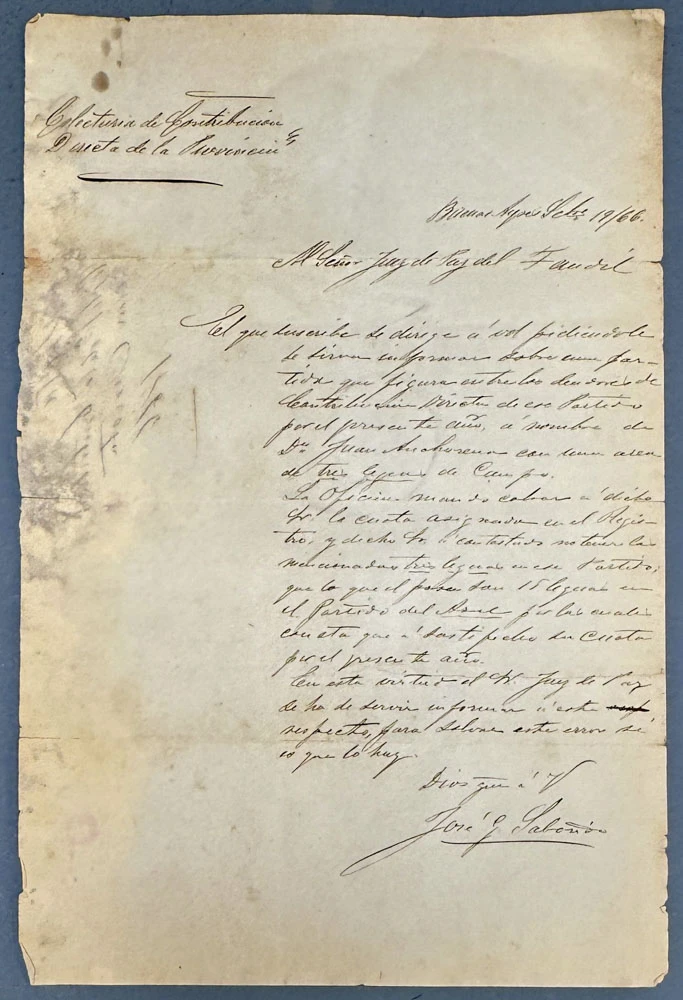 Colecturia de Contribucion
Directa de la Provincia
Buenos Ayres Setre 19/66.
Al Señor Juez de Paz del Tandil
El que suscribe se dirige a vd pidiendole
se sirva informar sobre una par-
tida que figura entre los deudores de
Contribucion Directa de ese Partido
por el presente año, a nombre de
Dn Juan Anchorena con una area
de tres leguas de Campo.
La Oficina mando cobrar a dicho
Sr. la cuota asignada en el Regis-
tro, y dicho Sr. a contestado no tener las
mencionadas tres leguas en ese Partido;
que lo que el posee son 15 leguas en
el Partido del Azul por las cuales
consta que a satisfecho su cuota
por el presente año.
En esta virtud el Sr. Juez de Paz
se ha de servir informar a este
respecto, para salvar este error si
es que lo hay.
Dios gue a V
José G.